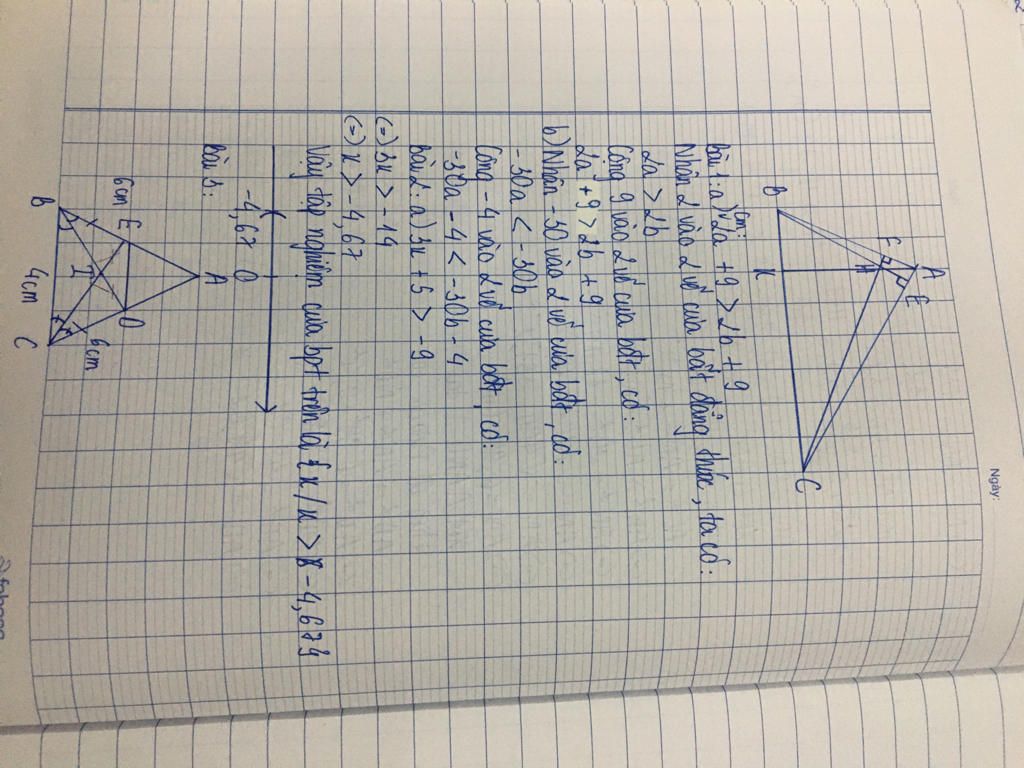 Ngày:
A
E
F
H
B
K
C
Bài 1: a) cm: 2a + 9 > 2b + 9
Nhân 2 vào 2 vế của bất đẳng thức, ta có:
2a > 2b
Cộng 9 vào 2 vế của bđt, có:
2a + 9 > 2b + 9
b) Nhân -30 vào 2 vế của bđt, có:
-30a < -30b
Cộng -4 vào 2 vế của bđt, có:
-30a - 4 < -30b - 4
Bài 2: a) 3x + 5 > -9
(=) 3x > -14
(=) x > -4,67
Vậy tập nghiệm của bpt trên là {x/x > -4,67}
-4,67 0
Bài 3:
A
E
D
6cm
6cm
I
B
4cm
C